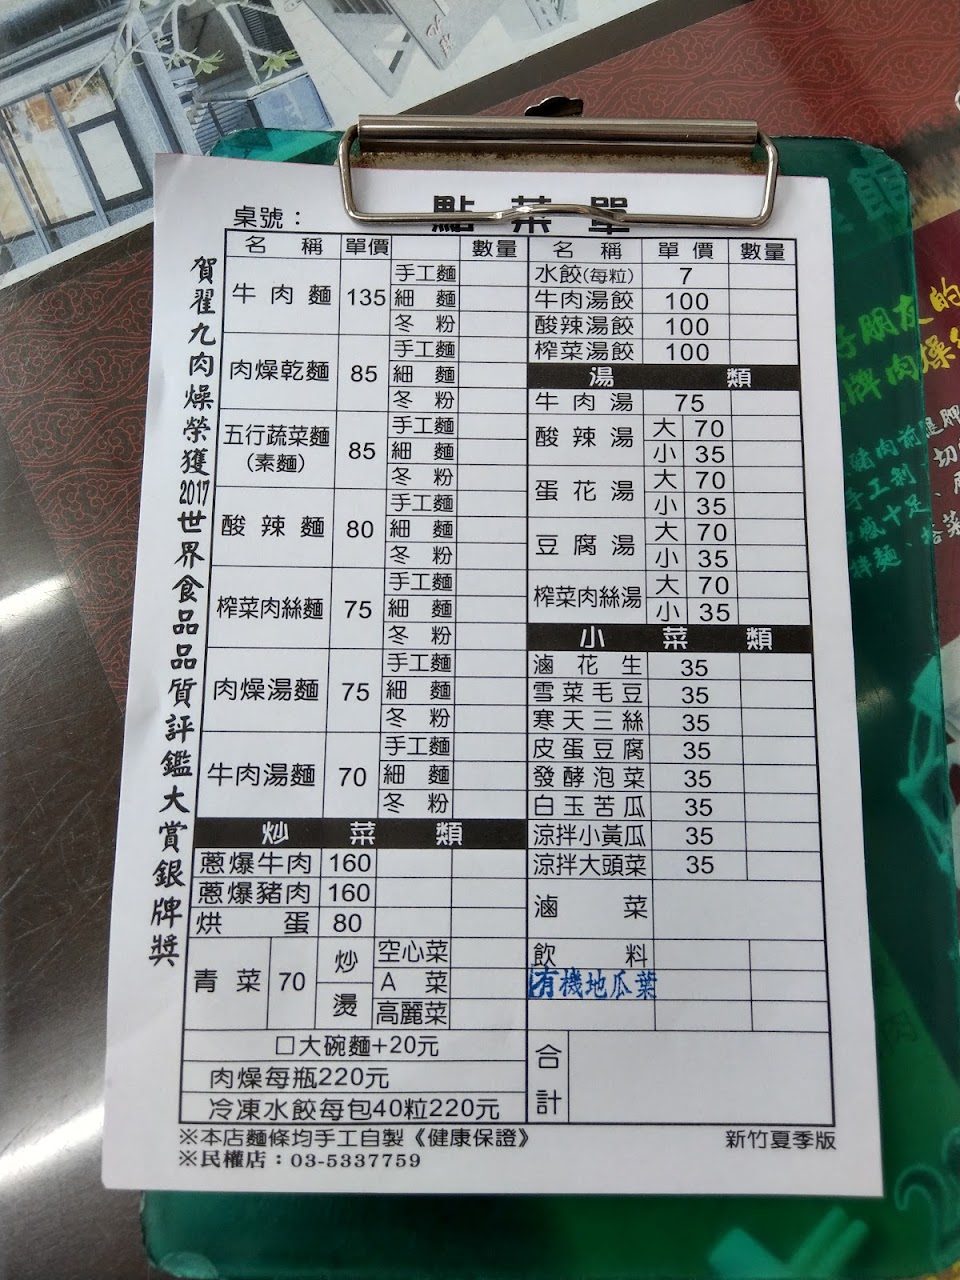 點菜單
桌號：
賀翟九肉燥榮獲2017世界食品品質評鑑大賞銀牌獎
名稱 單價 數量
牛肉麵 135 手工麵 細麵 冬粉
肉燥乾麵 85 手工麵 細麵 冬粉
五行蔬菜麵(素麵) 85 手工麵 細麵 冬粉
酸辣麵 80 手工麵 細麵 冬粉
榨菜肉絲麵 75 手工麵 細麵 冬粉
肉燥湯麵 75 手工麵 細麵 冬粉
牛肉湯麵 70 手工麵 細麵 冬粉
炒菜類
蔥爆牛肉 160
蔥爆豬肉 160
烘蛋 80
青菜 70 炒 燙 空心菜 A菜 高麗菜
□大碗麵+20元
肉燥每瓶220元
冷凍水餃每包40粒220元
名稱 單價 數量
水餃(每粒) 7
牛肉湯餃 100
酸辣湯餃 100
榨菜湯餃 100
湯類
牛肉湯 75
酸辣湯 大 70 小 35
蛋花湯 大 70 小 35
豆腐湯 大 70 小 35
榨菜肉絲湯 大 70 小 35
小菜類
滷花生 35
雪菜毛豆 35
寒天三絲 35
皮蛋豆腐 35
發酵泡菜 35
白玉苦瓜 35
涼拌小黃瓜 35
涼拌大頭菜 35
滷菜
飲料
有機地瓜葉
合計
※本店麵條均手工自製《健康保證》
新竹夏季版
※民權店：03-5337759
好朋友的
牌肉燥
豬肉前腿胛
手工剁、切
感十足、
拌麵、